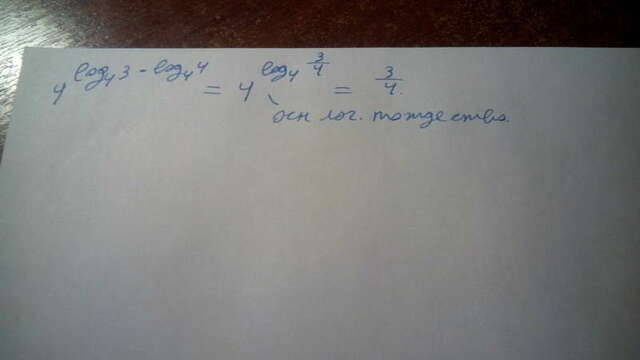 4^{log₄3 - log₄4} = 4^{log₄ 3/4} = 3/4.
осн лог. тождество.